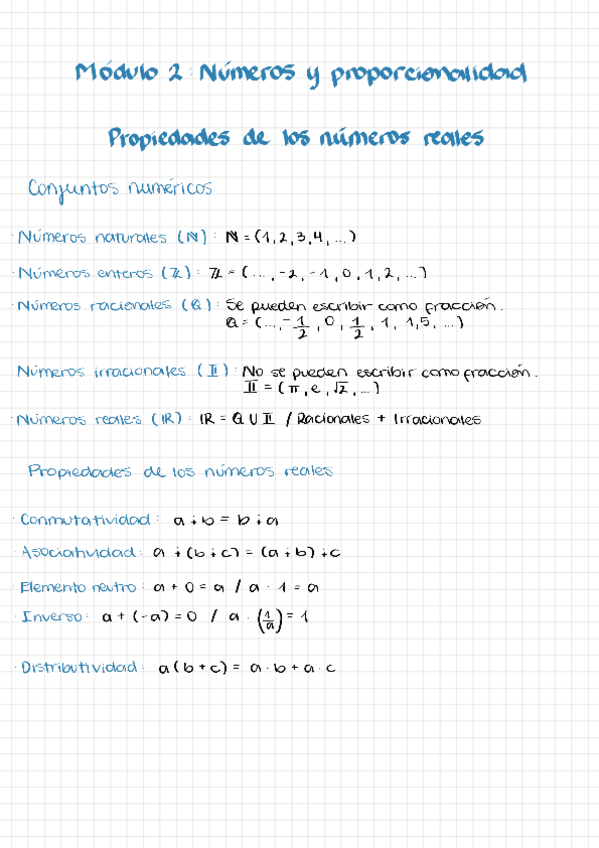 Módulo 2: Números y proporcionalidad
Propiedades de los números reales
Conjuntos numéricos
· Números naturales (ℕ): ℕ = (1, 2, 3, 4, ...)
· Números enteros (ℤ): ℤ = (..., -2, -1, 0, 1, 2, ...)
· Números racionales (ℚ): Se pueden escribir como fracción.
ℚ = (..., -1/2, 0, 1/2, 1, 1,5, ...)
· Números irracionales (𝕀): No se pueden escribir como fracción.
𝕀 = (π, e, √2, ...)
· Números reales (ℝ): ℝ = ℚ ∪ 𝕀 / Racionales + Irracionales
Propiedades de los números reales
· Conmutatividad: a ∔ b = b ∔ a
· Asociatividad: a ∔ (b ∔ c) = (a ∔ b) ∔ c
· Elemento neutro: a + 0 = a / a · 1 = a
· Inverso: a + (-a) = 0 / a · (1/a) = 1
· Distributividad: a(b + c) = a · b + a · c